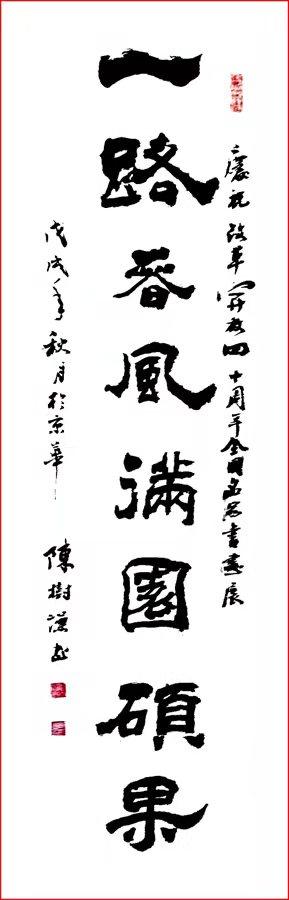 慶祝改革開放四十周年全國名家書畫展
一路春風滿園碩果
戊戌年秋月於京華
陳樹